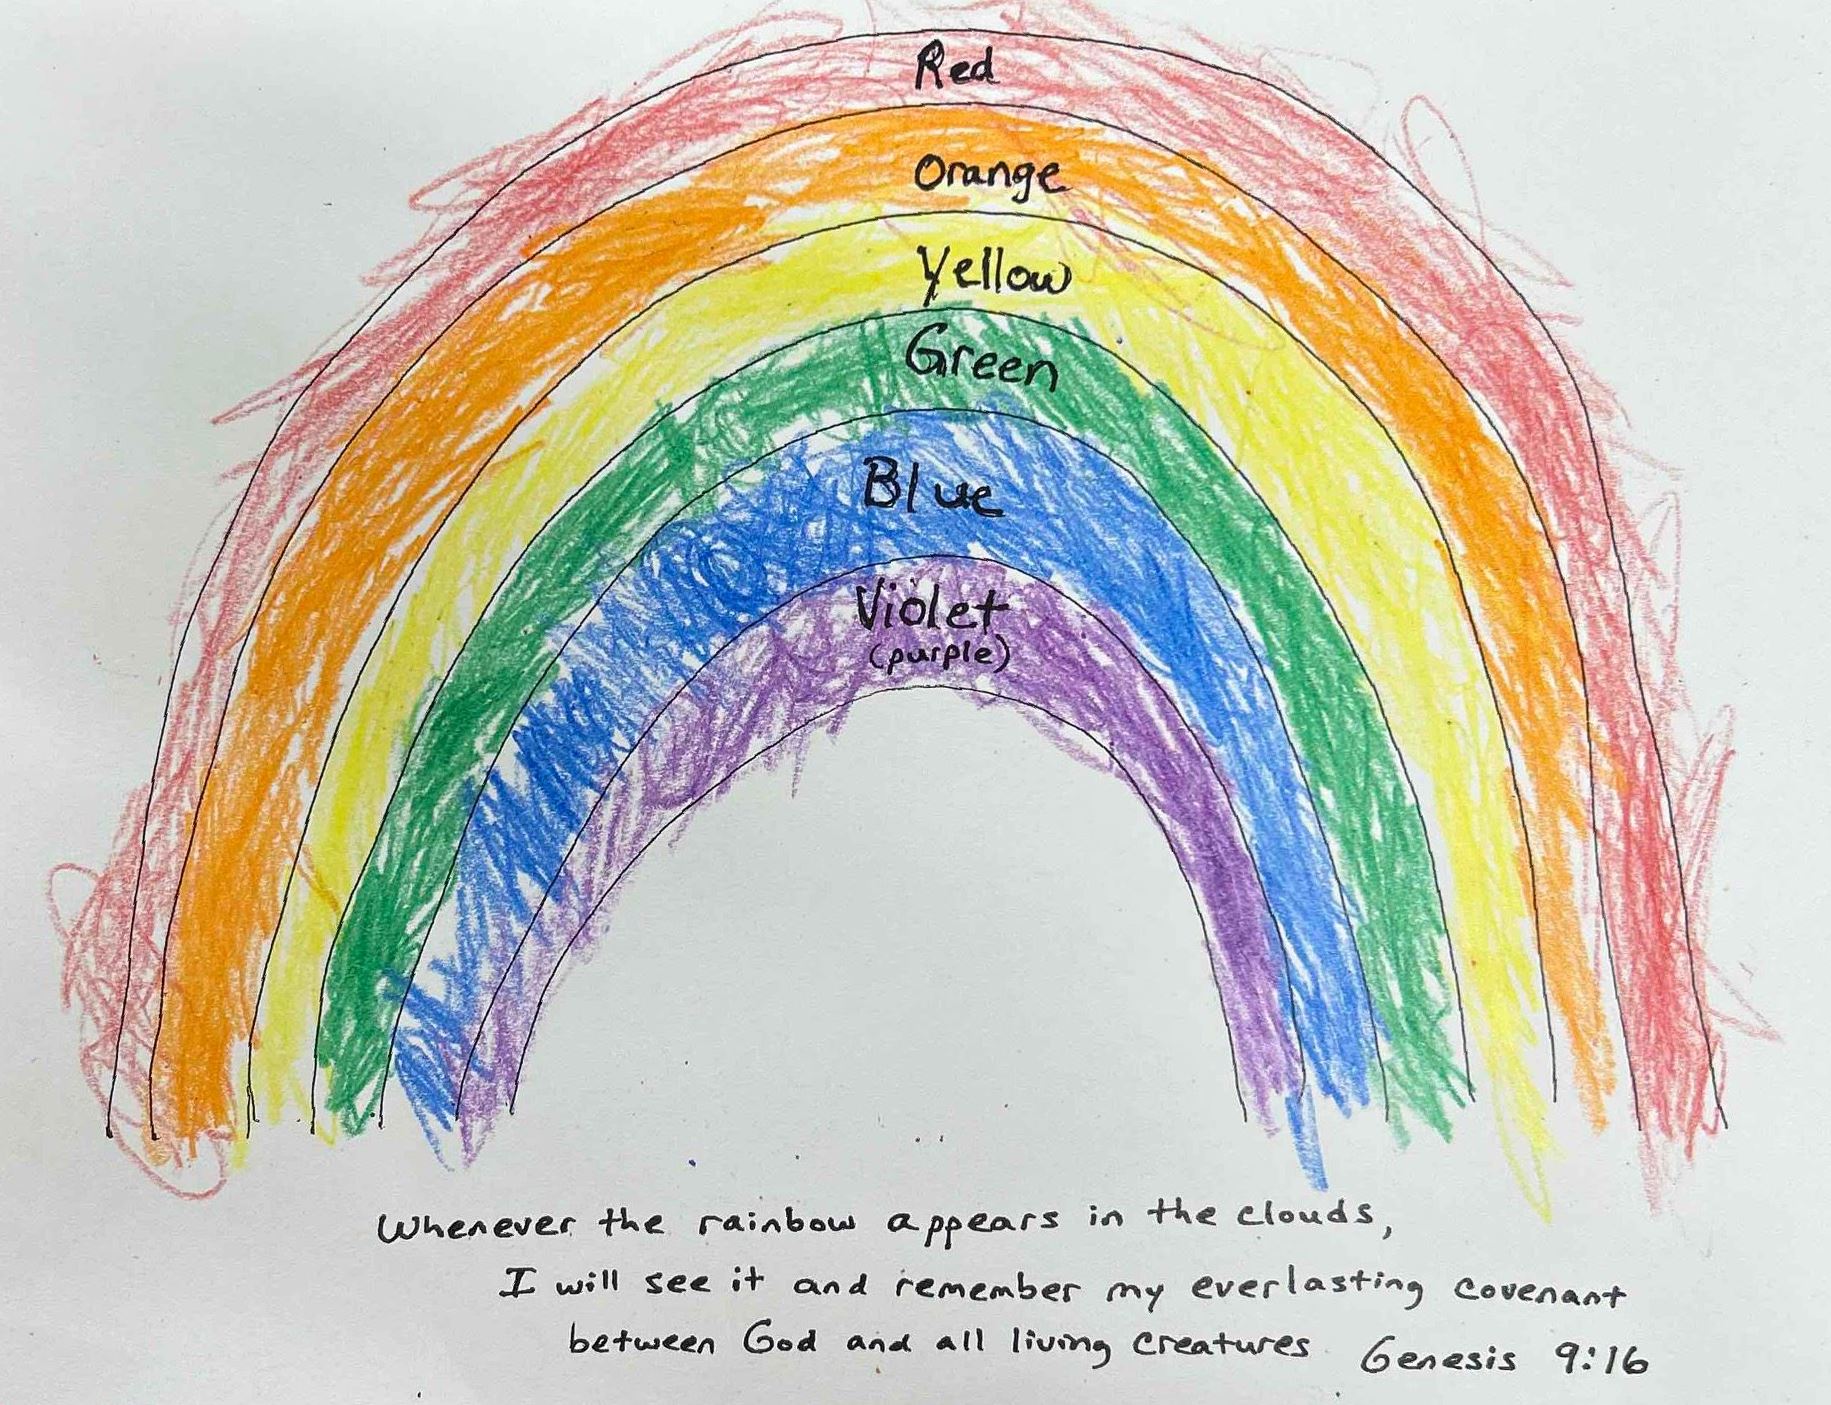 Red
Orange
Yellow
Green
Blue
Violet
(purple)
Whenever the rainbow appears in the clouds,
I will see it and remember my everlasting covenant
between God and all living creatures Genesis 9:16